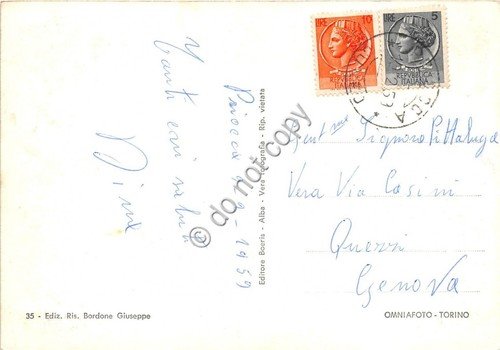 LIRE 10
LIRE 5
REPUBBLICA
ITALIANA
REPUBBLICA
ITALIANA
Priocca 1959
Tanti cari saluti
Editore Boeris - Alba - Vera fotografia - Rip. vietata
Gent Signora Pittaluga
Vera Via Casini
Quezzi
Genova
35 - Ediz. Ris. Bordone Giuseppe
OMNIAFOTO - TORINO
© do not copy